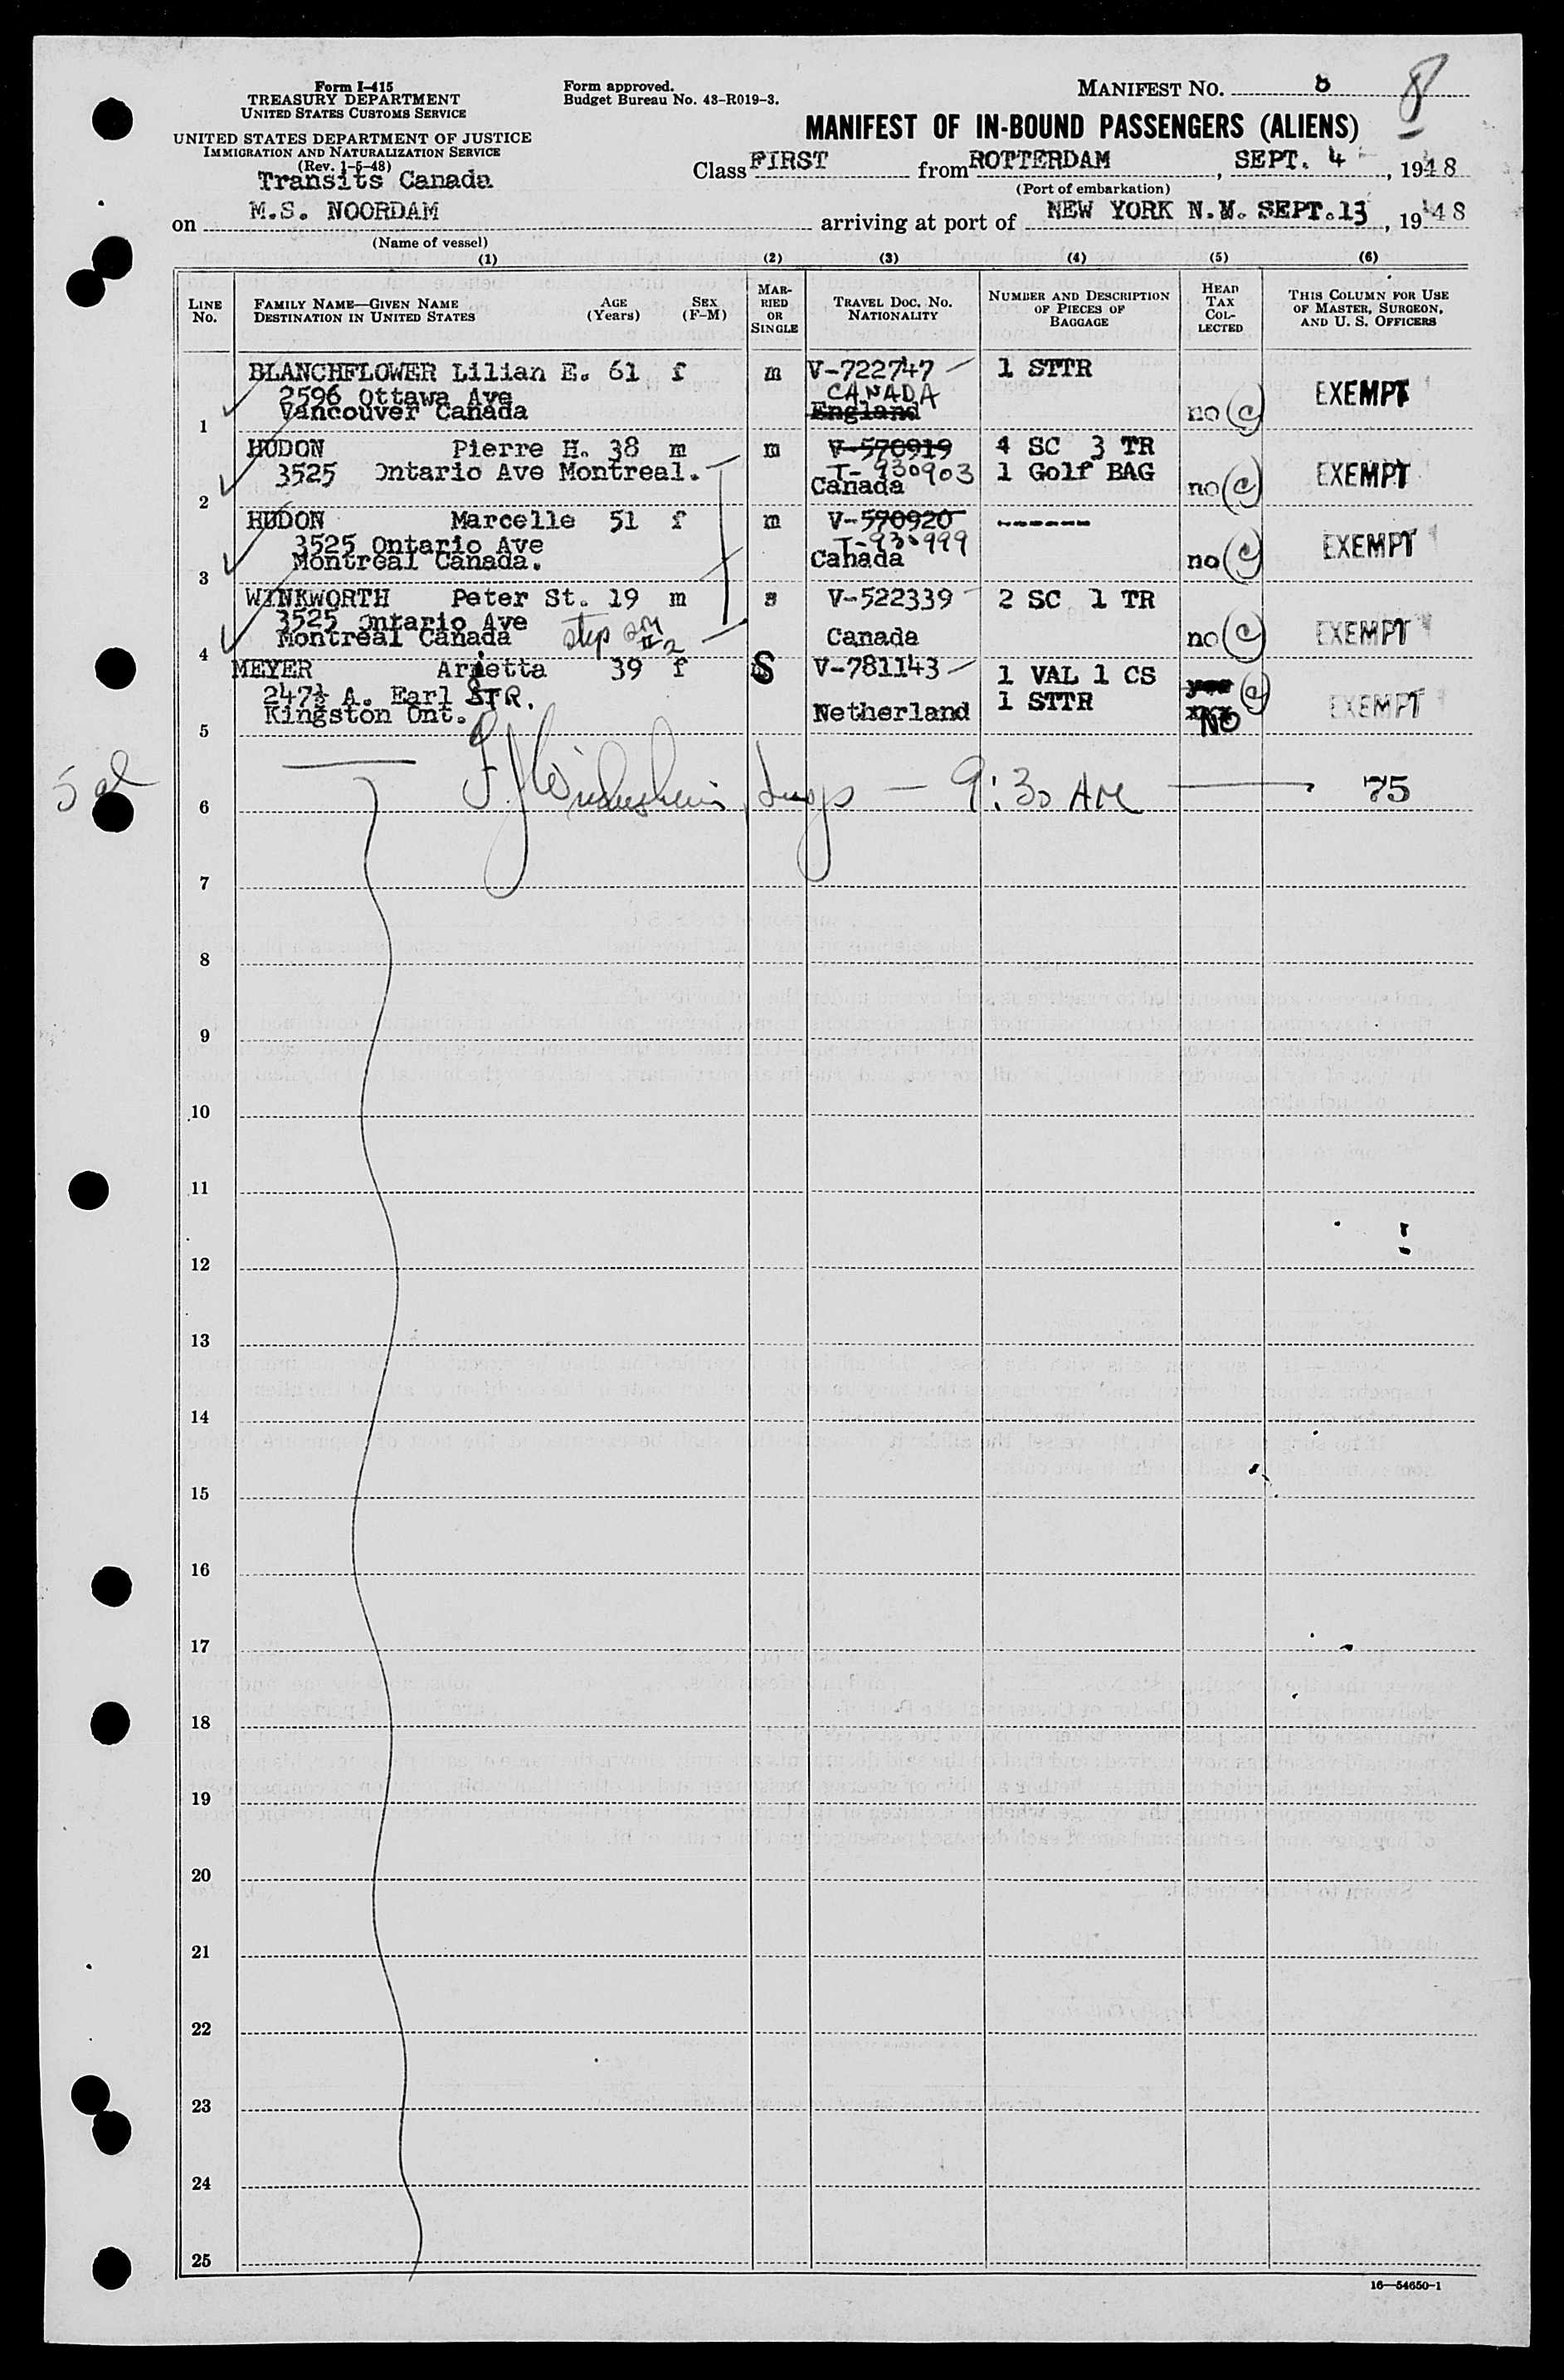 Form I-415
TREASURY DEPARTMENT
UNITED STATES CUSTOMS SERVICE
UNITED STATES DEPARTMENT OF JUSTICE
IMMIGRATION AND NATURALIZATION SERVICE
(Rev. 1-5-48)
Transits Canada
Form approved.
Budget Bureau No. 43-R019-3.
MANIFEST NO. 8 8
MANIFEST OF IN-BOUND PASSENGERS (ALIENS)
Class FIRST from ROTTERDAM, SEPT. 4, 1948
(Port of embarkation)
on M.S. NOORDAM arriving at port of NEW YORK N.Y. SEPT.13, 1948
(Name of vessel)
(1) (2) (3) (4) (5) (6)
LINE No.
FAMILY NAME—GIVEN NAME
DESTINATION IN UNITED STATES
AGE (Years)
SEX (F-M)
MARRIED OR SINGLE
TRAVEL DOC. NO. NATIONALITY
NUMBER AND DESCRIPTION OF PIECES OF BAGGAGE
HEAD TAX COLLECTED
THIS COLUMN FOR USE OF MASTER, SURGEON, AND U. S. OFFICERS
BLANCHFLOWER Lilian E. 61 f m V-722747 1 STTR
2596 Ottawa Ave CANADA EXEMPT
Vancouver Canada England no (c)
1
HUDON Pierre H. 38 m m V-570919 4 SC 3 TR
3525 Ontario Ave Montreal. T-930903 1 Golf BAG EXEMPT
Canada no (c)
2
HUDON Marcelle 51 f m V-570920 -------
3525 Ontario Ave T-930999 EXEMPT
Montreal Canada. Canada no (c)
3
WINKWORTH Peter St. 19 m s V-522339 2 SC 1 TR
3525 Ontario Ave EXEMPT
Montreal Canada step son #2 Canada no (c)
4
MEYER Arietta 39 f S V-781143 1 VAL 1 CS
247½ A. Earl STR. 1 STTR (c) EXEMPT
Kingston Ont. Netherland NO
5
9:30 AM 75
6
7
8
9
10
11
12
13
14
15
16
17
18
19
20
21
22
23
24
25
16—54650-1